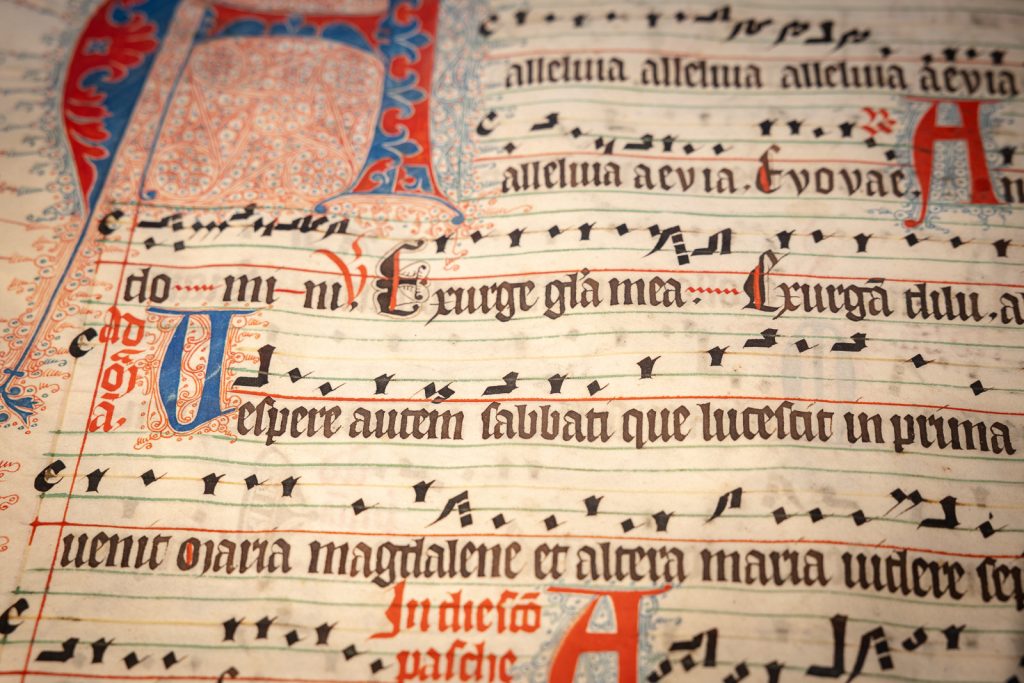 alleluia alleluia alleluia aevia
alleluia aevia. Evovae. ℟ An
do mi ni, ℣ Exurge gl̄a mea. Exurgā dilu. a
ad
a. Vespere autem sabbati que lucescit in prima
uenit Maria magdalene et altera maria uidere sep
In die sc̄o A
pasche